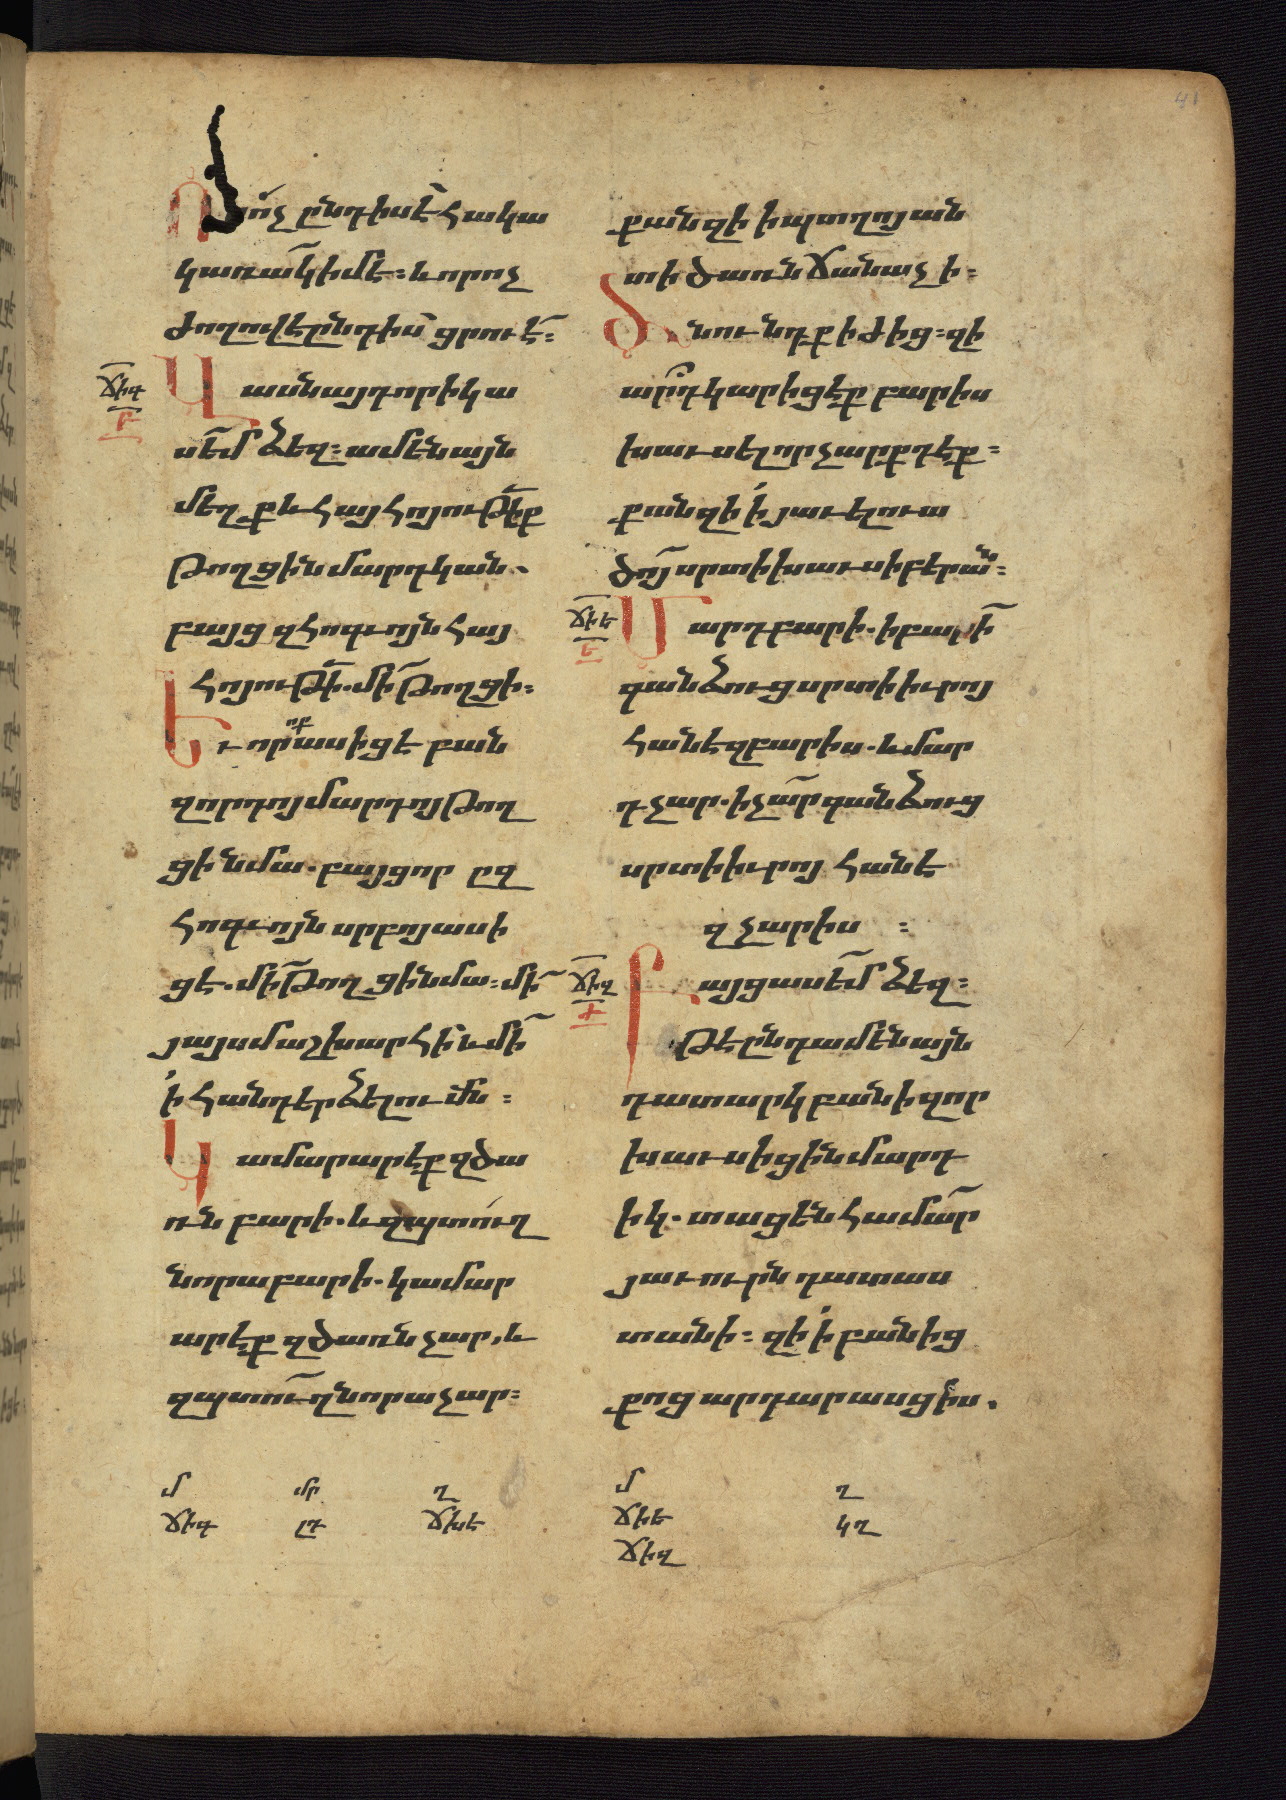 41
Որ ոչ ընդ իս է հակա
կառակ իմ է։ և որ ոչ
ժողովէ ընդ իս ցրուէ։
ճիգ
բ
Վասն այդորիկ ա
սեմ ձեզ։ ամենայն
մեղք և հայհոյութիք
թողցին մարդկան.
բայց զհոգւոյն հայ
հոյութի. մի թողցի։
Եւ որ ոք ասիցէ բան
զորդոյ մարդոյ թող
ցի նմա. բայց որ ըզ
հոգւոյն սրբոյ ասի
ցէ. մի թողցի նմա։ մի
յայսմ աշխարհի և մի
ի հանդերձելումն։
Կամ արարէք զծա
ռն բարի. և զպտուղ
նորա բարի. կամ ար
արէք զծառն չար, և
զպտուղ նորա չար։
քանզի ի պտղոյ ան
տի ծառն ճանաչի։
Ծնունդք իժից։ զի
արդ կարիցէք բարիս
խաւսել որ չարքդ էք։
քանզի ի յաւելուա
ծոյ սրտի խաւսի բերան։
ճիե
ե
Մարդ բարի. ի բարի
գանձուց սրտի իւրոյ
հանէ զբարիս. և մար
դ չար. ի չար գանձուց
սրտի իւրոյ հանէ
զչարիս ։
ճիզ
ժ
Բայց ասեմ ձեզ։
թէ ընդ ամենայն
դատարկ բանի զոր
խաւսիցին մարդ
իկ. տացեն համար
յաւուրն դատաս
տանի։ զի ի բանից
քոց արդարասցիս.
մ մր ղ մ ղ
ճիգ ճիե կղ
ճիզ